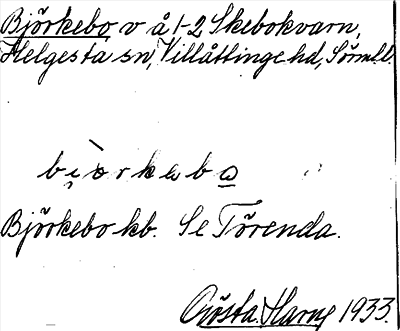 Björkebo, v å 1-2 Skebokvarn,
Helgesta sn, Villåttinge hd, Sörmll.
bi̯ö̀rkebo̲
Björkebo kb. Se Törenda.
Gösta Harne 1933.